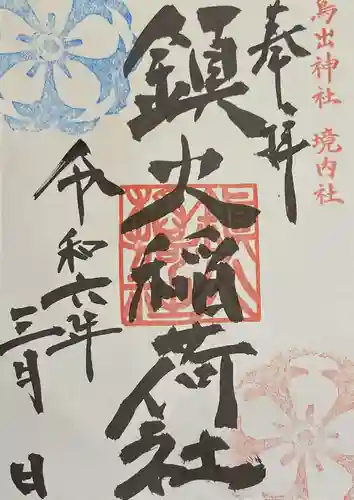 烏出神社 境内社
奉拝
鎮火稲荷社
令和六年
三月 日